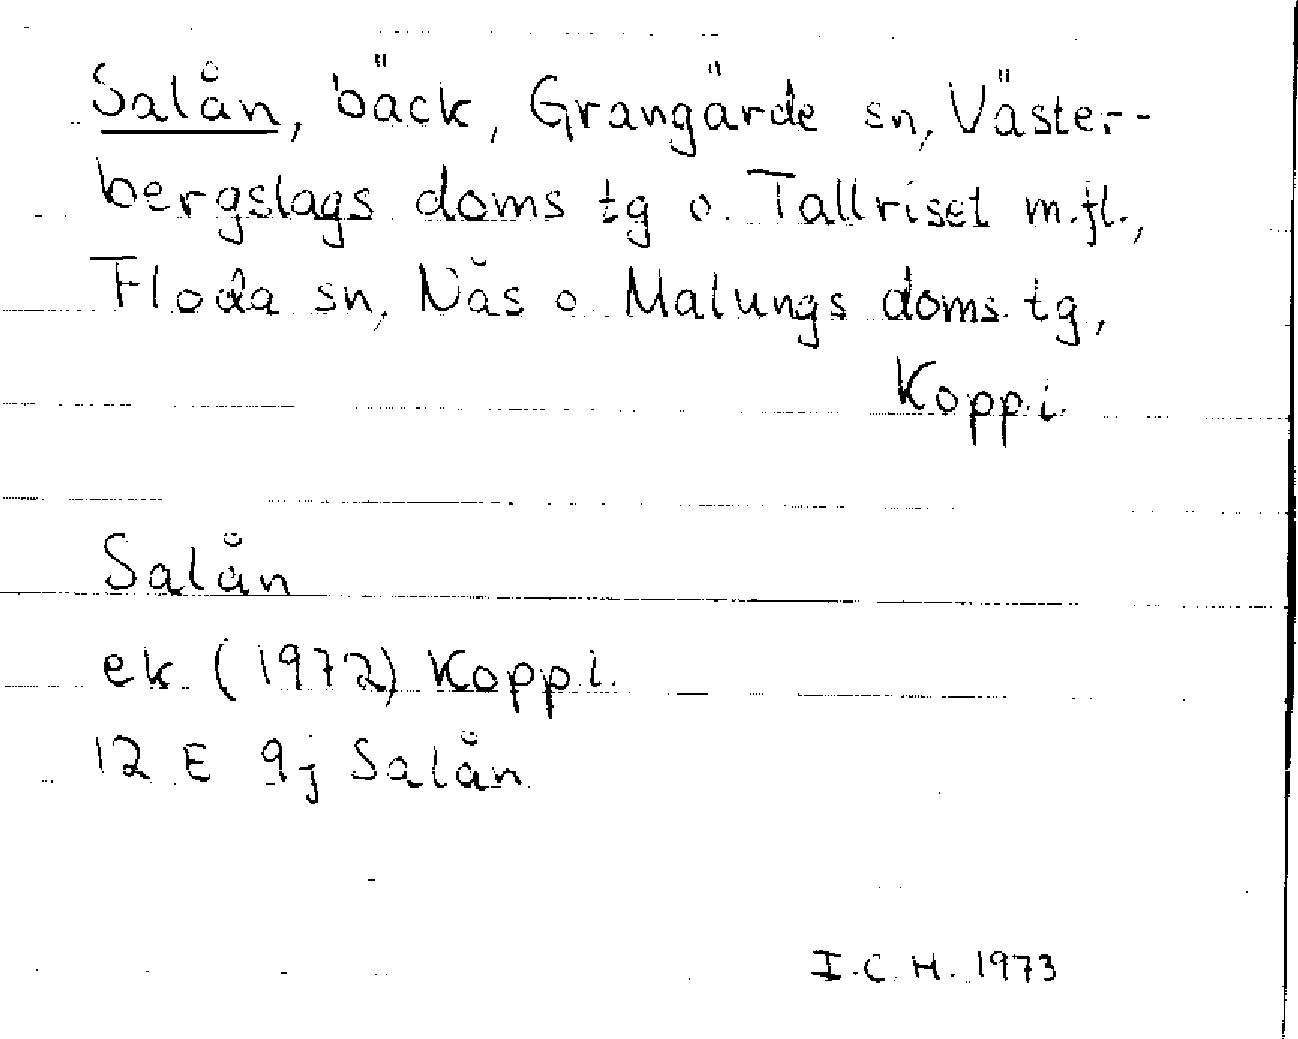 Salån, bäck, Grangärde sn, Väster-
bergslags doms tg o. Tallriset m.fl.,
Floda sn, Nås o Malungs doms tg,
Kopp.l.
Salån
ek (1972) Kopp.l.
12 E 9j Salån
I.C.H. 1973